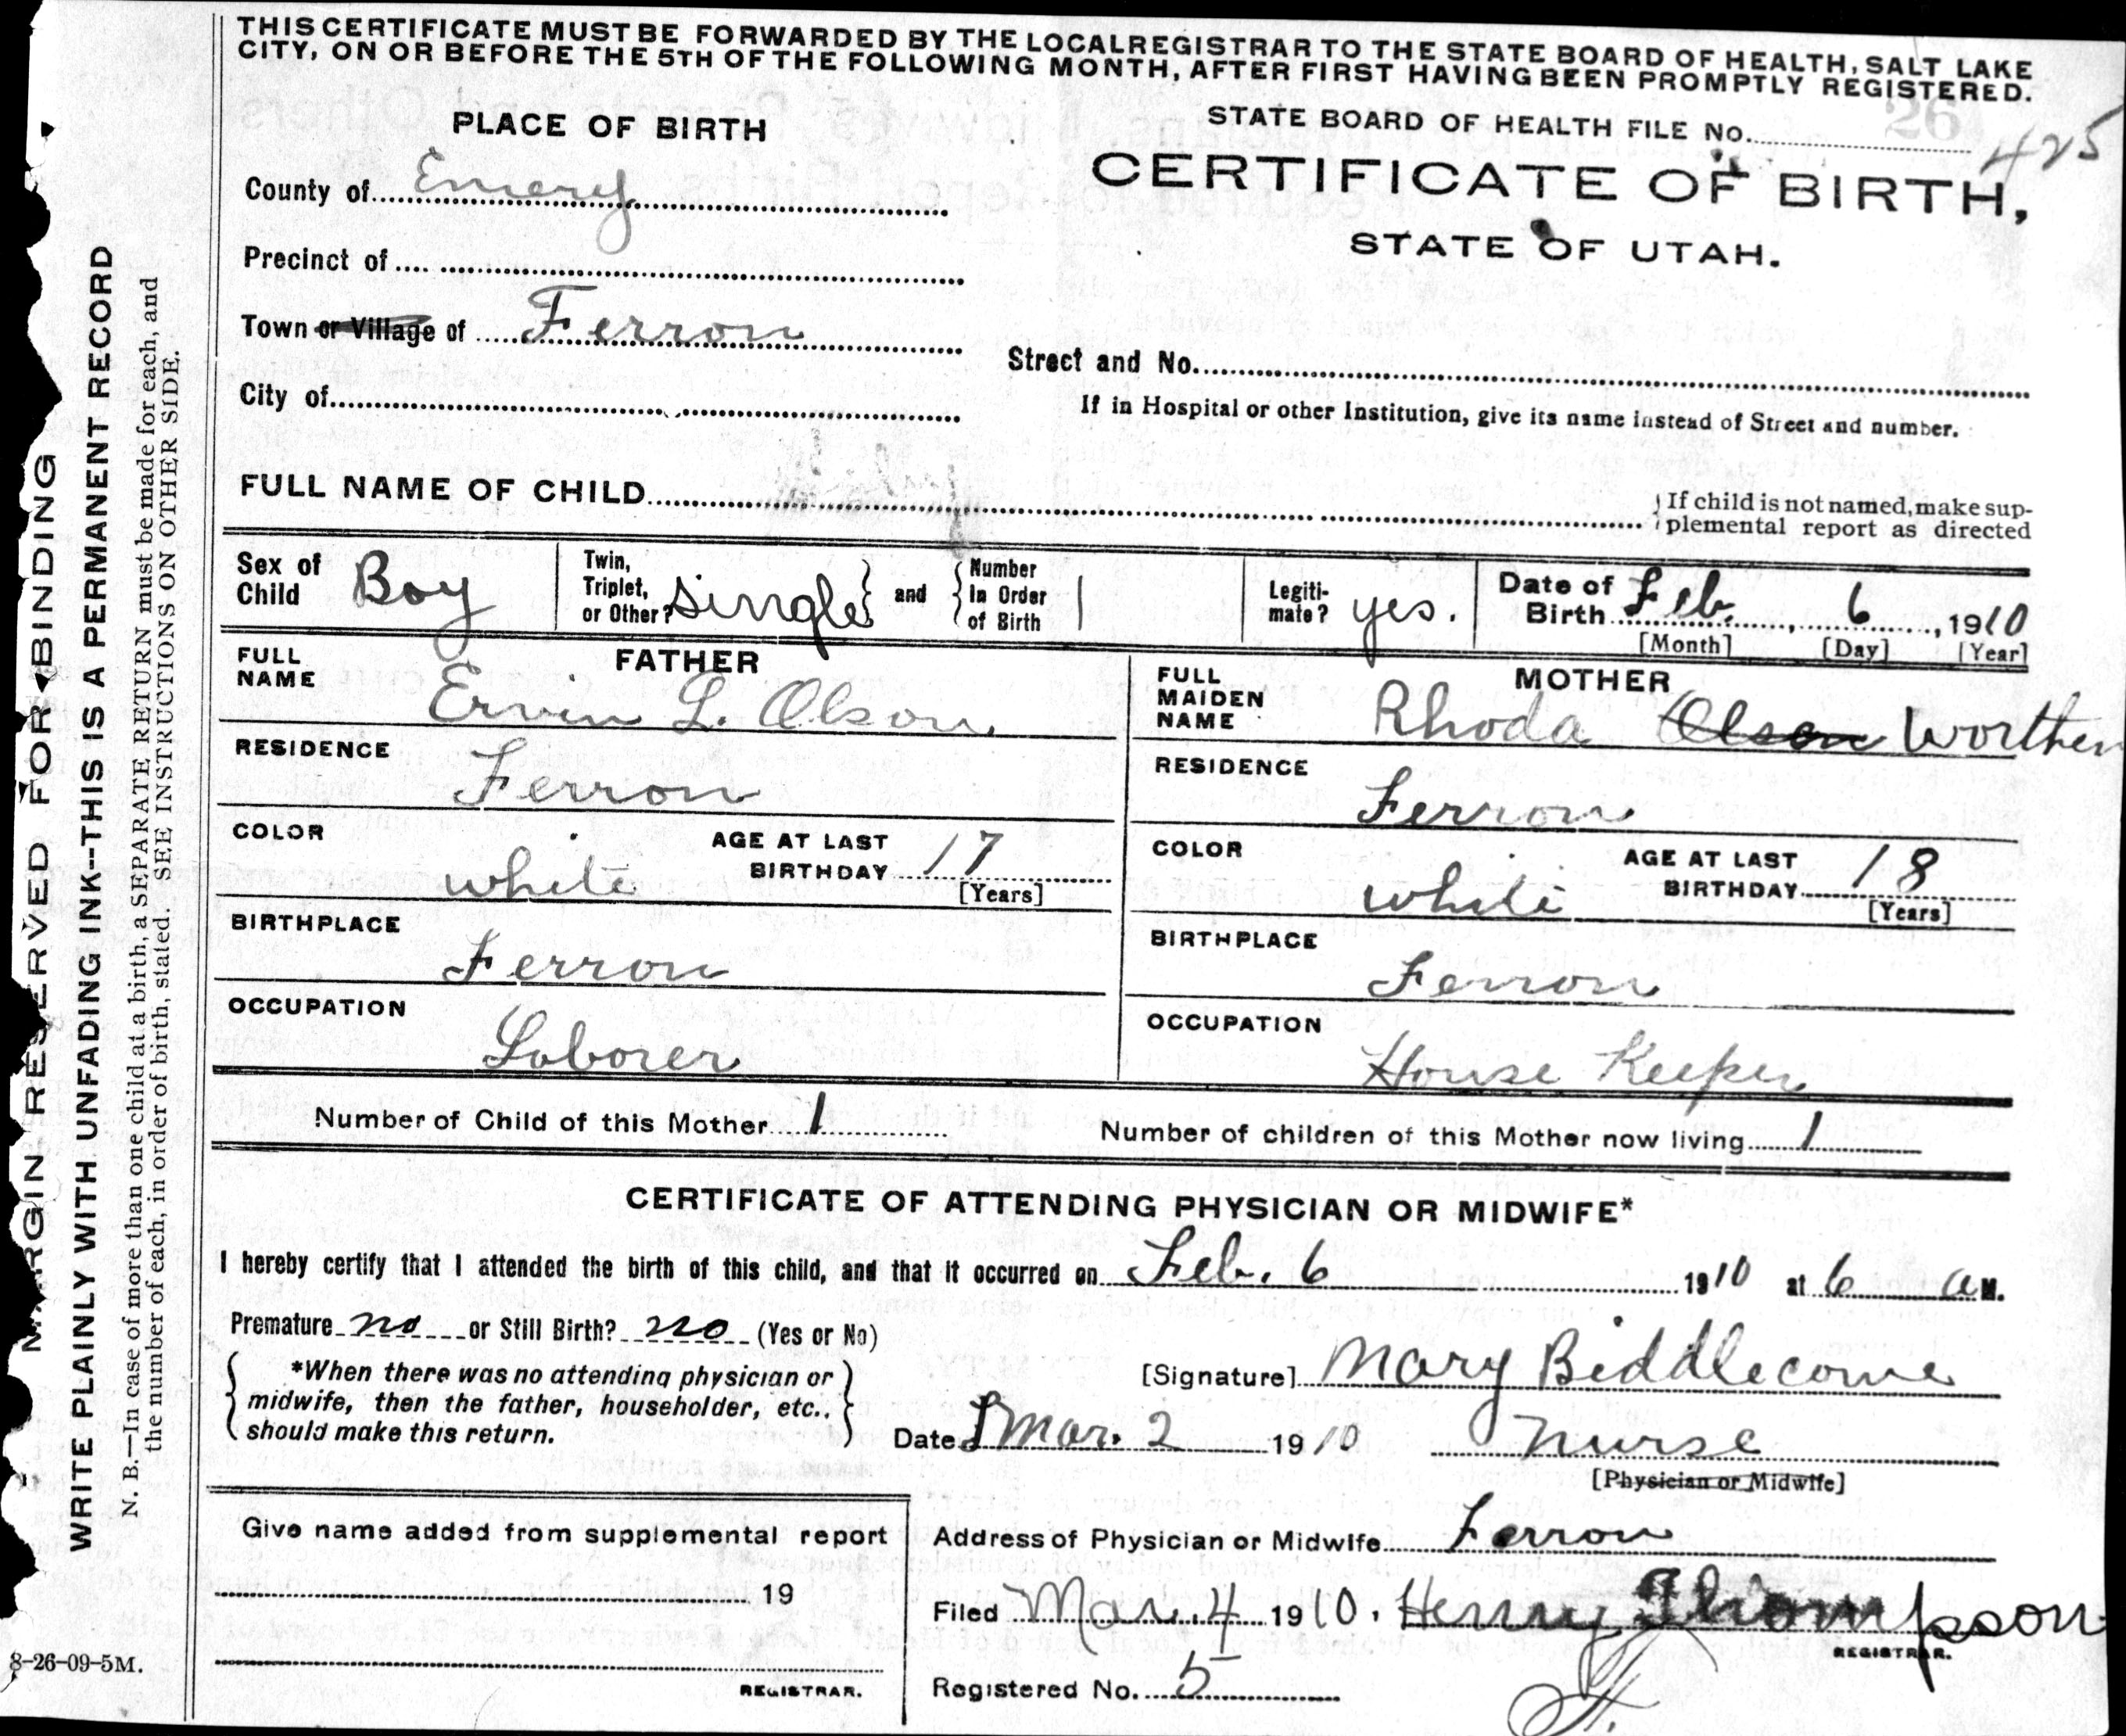 THIS CERTIFICATE MUST BE FORWARDED BY THE LOCAL REGISTRAR TO THE STATE BOARD OF HEALTH, SALT LAKE
CITY, ON OR BEFORE THE 5TH OF THE FOLLOWING MONTH, AFTER FIRST HAVING BEEN PROMPTLY REGISTERED.
PLACE OF BIRTH
STATE BOARD OF HEALTH FILE No. 26 425
County of Emery
CERTIFICATE OF BIRTH,
STATE OF UTAH.
Precinct of
Town or Village of Ferron
Street and No.
City of
If in Hospital or other Institution, give its name instead of Street and number.
FULL NAME OF CHILD
If child is not named, make sup-
plemental report as directed
Sex of Child Boy
Twin, Triplet, or Other? single and Number In Order of Birth 1
Legiti-mate? yes.
Date of Birth Feb. 6, 1910
[Month] [Day] [Year]
FATHER
FULL NAME Ervin L. Olson
RESIDENCE Ferron
COLOR white AGE AT LAST BIRTHDAY 17
[Years]
BIRTHPLACE Ferron
OCCUPATION Laborer
MOTHER
FULL MAIDEN NAME Rhoda Olson Worthen
RESIDENCE Ferron
COLOR white AGE AT LAST BIRTHDAY 18
[Years]
BIRTHPLACE Ferron
OCCUPATION House Keeper
Number of Child of this Mother 1
Number of children of this Mother now living 1
CERTIFICATE OF ATTENDING PHYSICIAN OR MIDWIFE*
I hereby certify that I attended the birth of this child, and that it occurred on Feb. 6 1910 at 6 a M.
Premature no or Still Birth? no (Yes or No)
*When there was no attending physician or
midwife, then the father, householder, etc.,
should make this return.
[Signature] Mary Biddlecome
Date Mar. 2 1910 Nurse
[Physician or Midwife]
Give name added from supplemental report
19
REGISTRAR.
Address of Physician or Midwife Ferron
Filed Mar. 4 1910. Henry Thompson
REGISTRAR.
Registered No. 5
MARGIN RESERVED FOR BINDING
WRITE PLAINLY WITH UNFADING INK--THIS IS A PERMANENT RECORD
N. B.—In case of more than one child at a birth, a SEPARATE RETURN must be made for each, and
the number of each, in order of birth, stated. SEE INSTRUCTIONS ON OTHER SIDE.
8-26-09-5M.